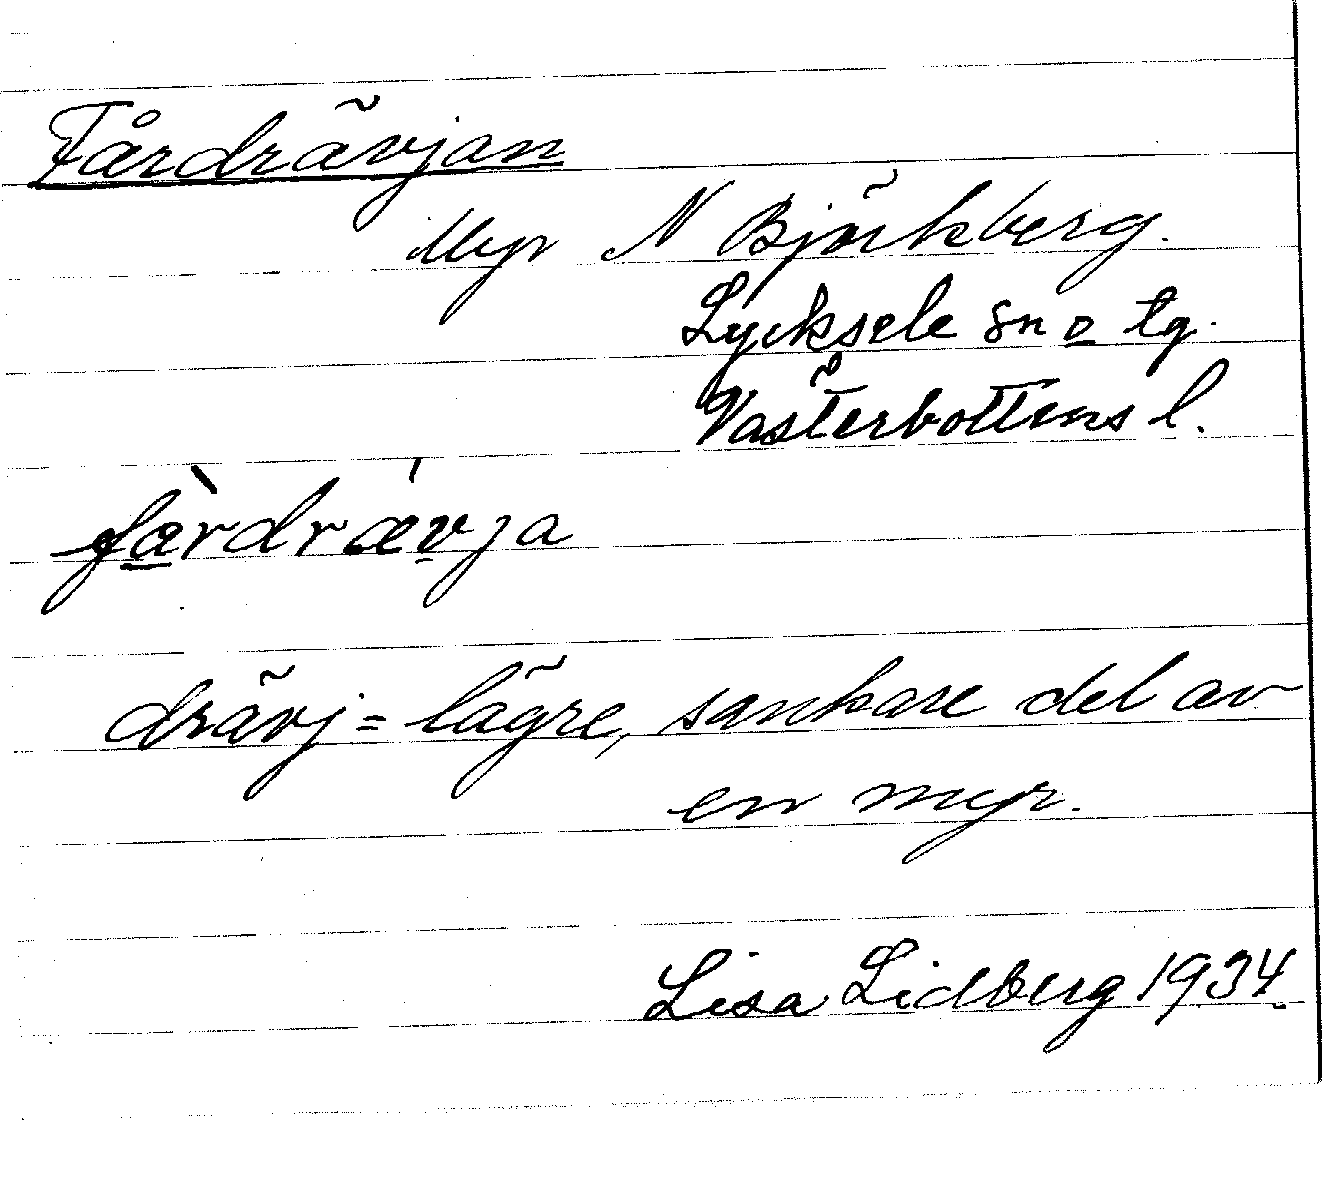 Fårdrävjan
Myr N Björkberg.
Lycksele sn o tg.
Västerbottens l.
fæ̀rdrǽvja
drävj = lägre, sankare del av
en myr.
Lisa Lidberg 1934.